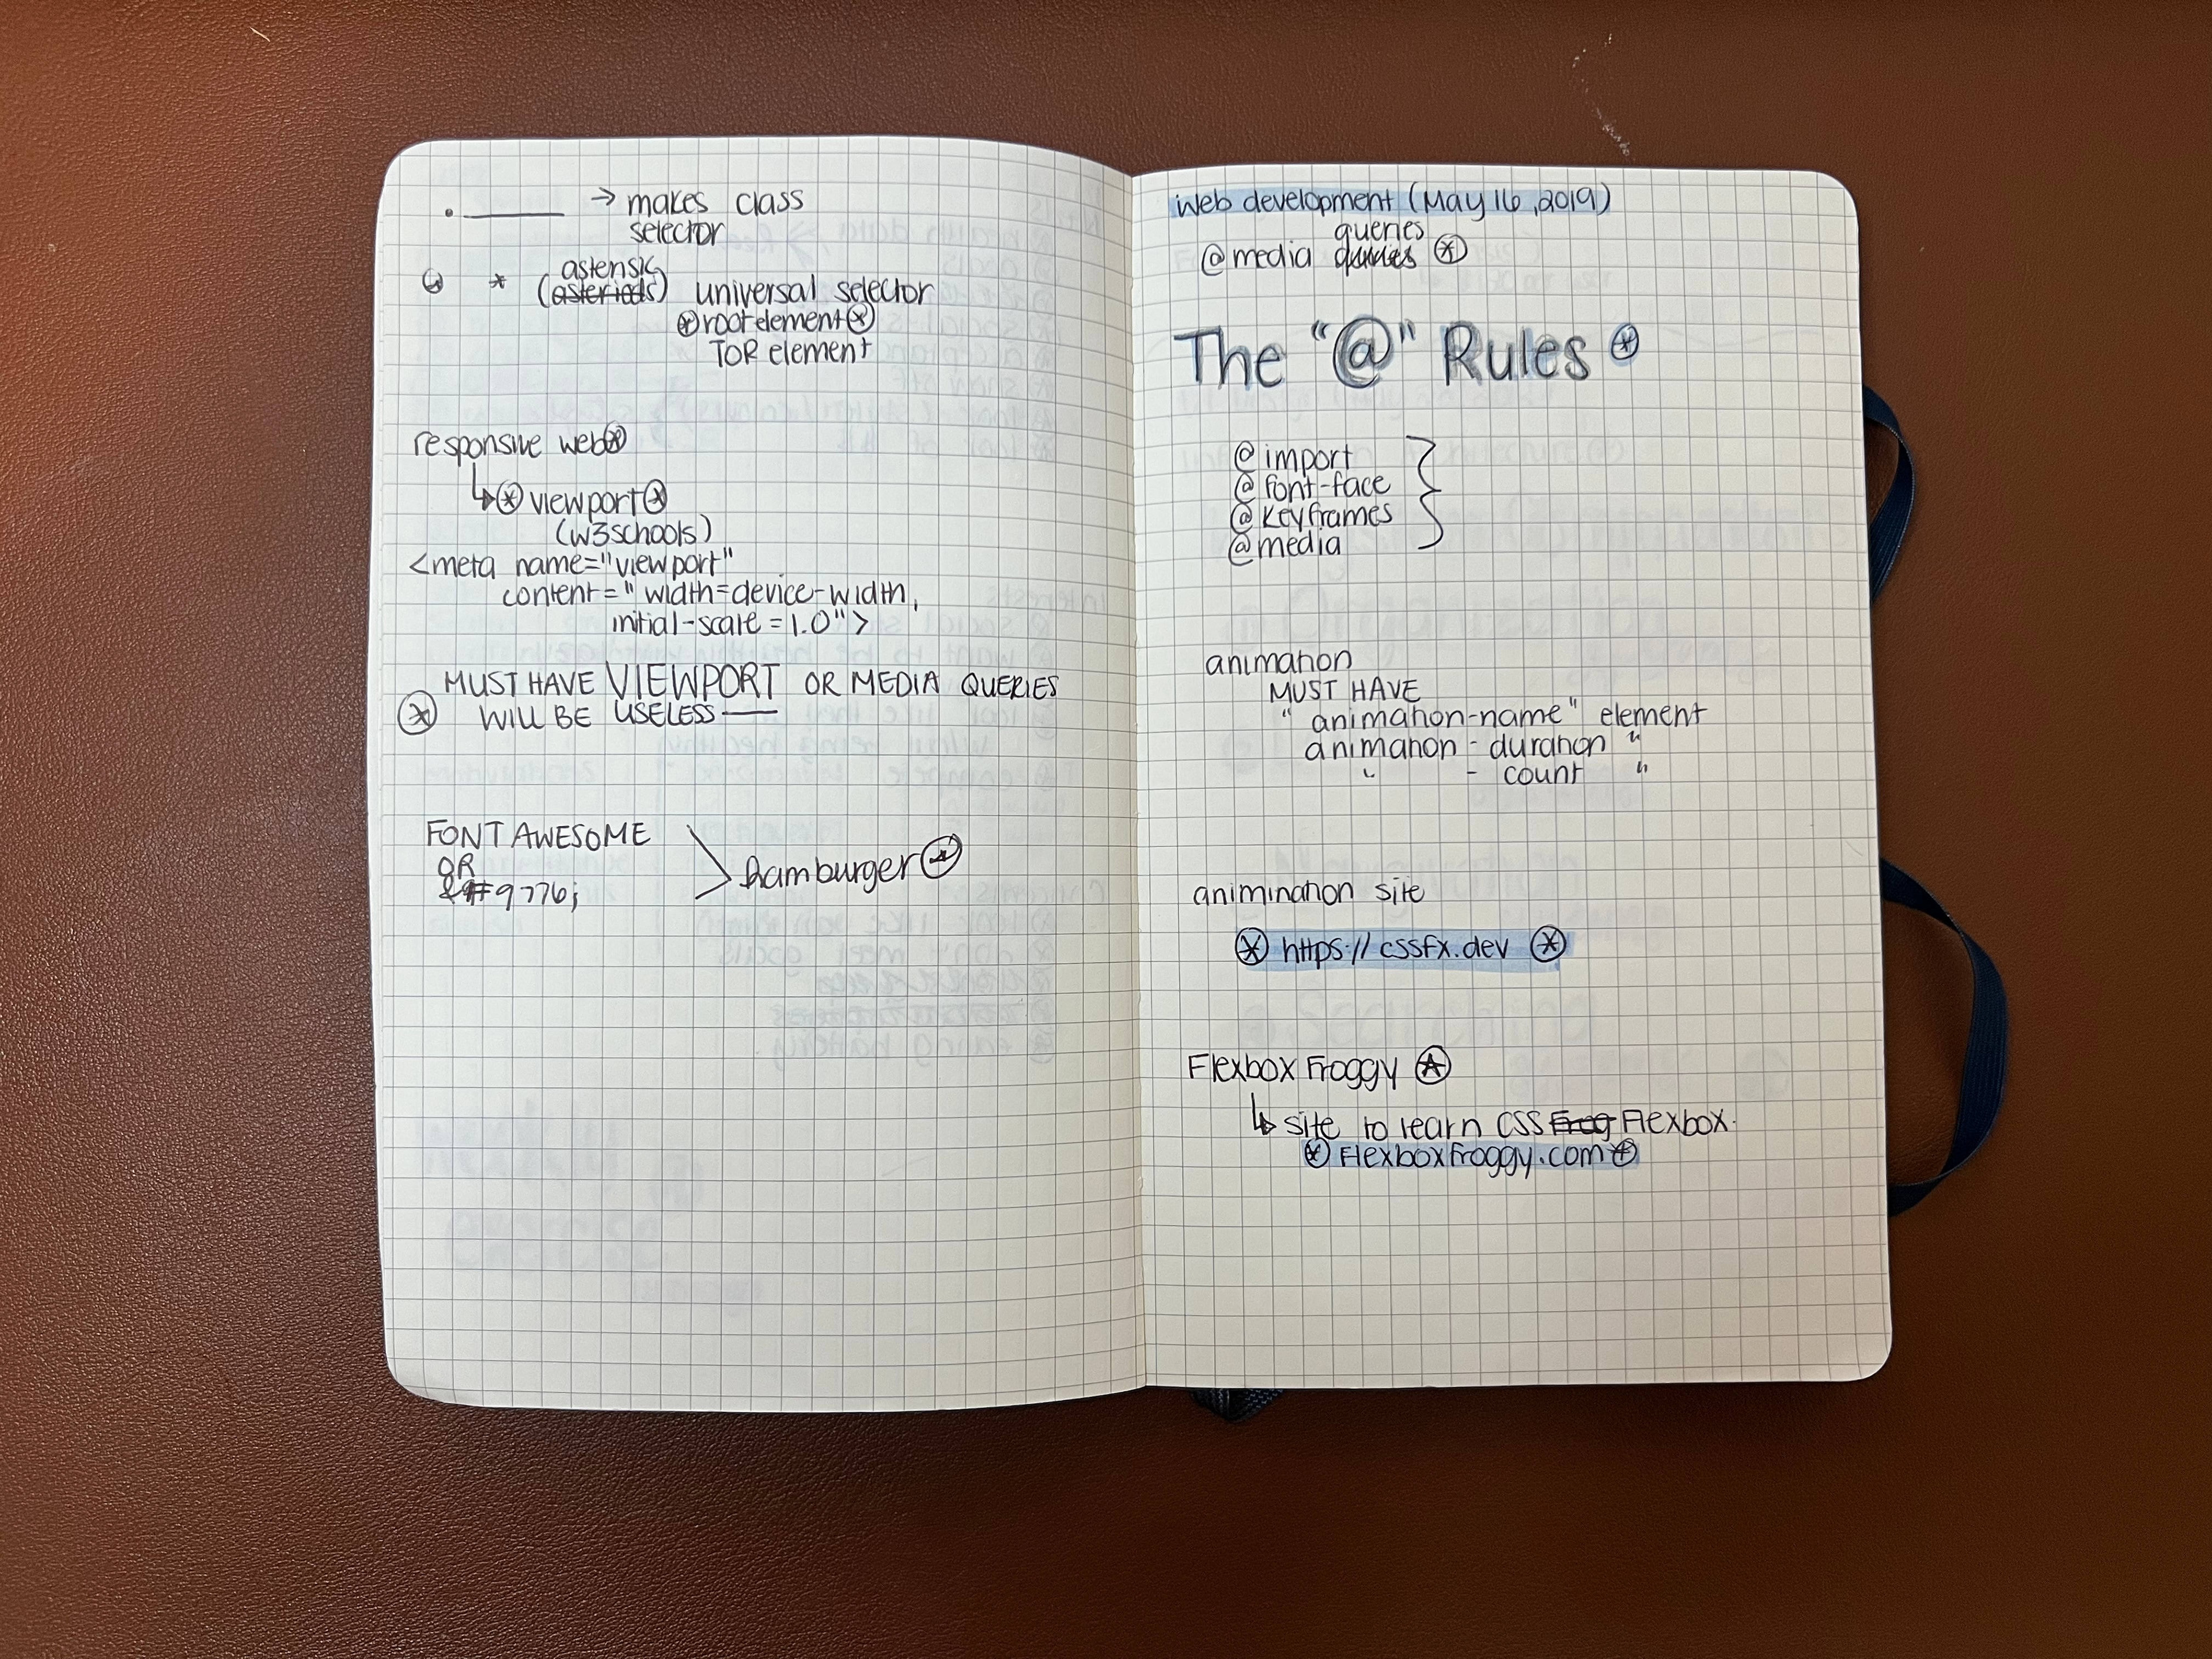 . ______ → makes class
selector
* (astensic asteriods) universal selector
⊛ root element ⊛
TOR element
responsive web ⊛
↳ ⊛ viewport ⊛
(w3schools)
<meta name="viewport"
content=" width=device-width,
initial-scale = 1.0">
MUST HAVE VIEWPORT OR MEDIA QUERIES
⊛ WILL BE USELESS —
FONT AWESOME
OR
&#9776;
hamburger ⊛
web development (May 16, 2019)
queries
@media ⊛
The "@" Rules ⊛
@import
@font-face
@keyframes
@media
animation
MUST HAVE
"animation-name" element
animation - duration "
" - count "
animination site
⊛ https://cssfx.dev ⊛
Flexbox Froggy ⊛
↳ site to learn CSS Frog Flexbox.
⊛ Flexboxfroggy.com ⊛